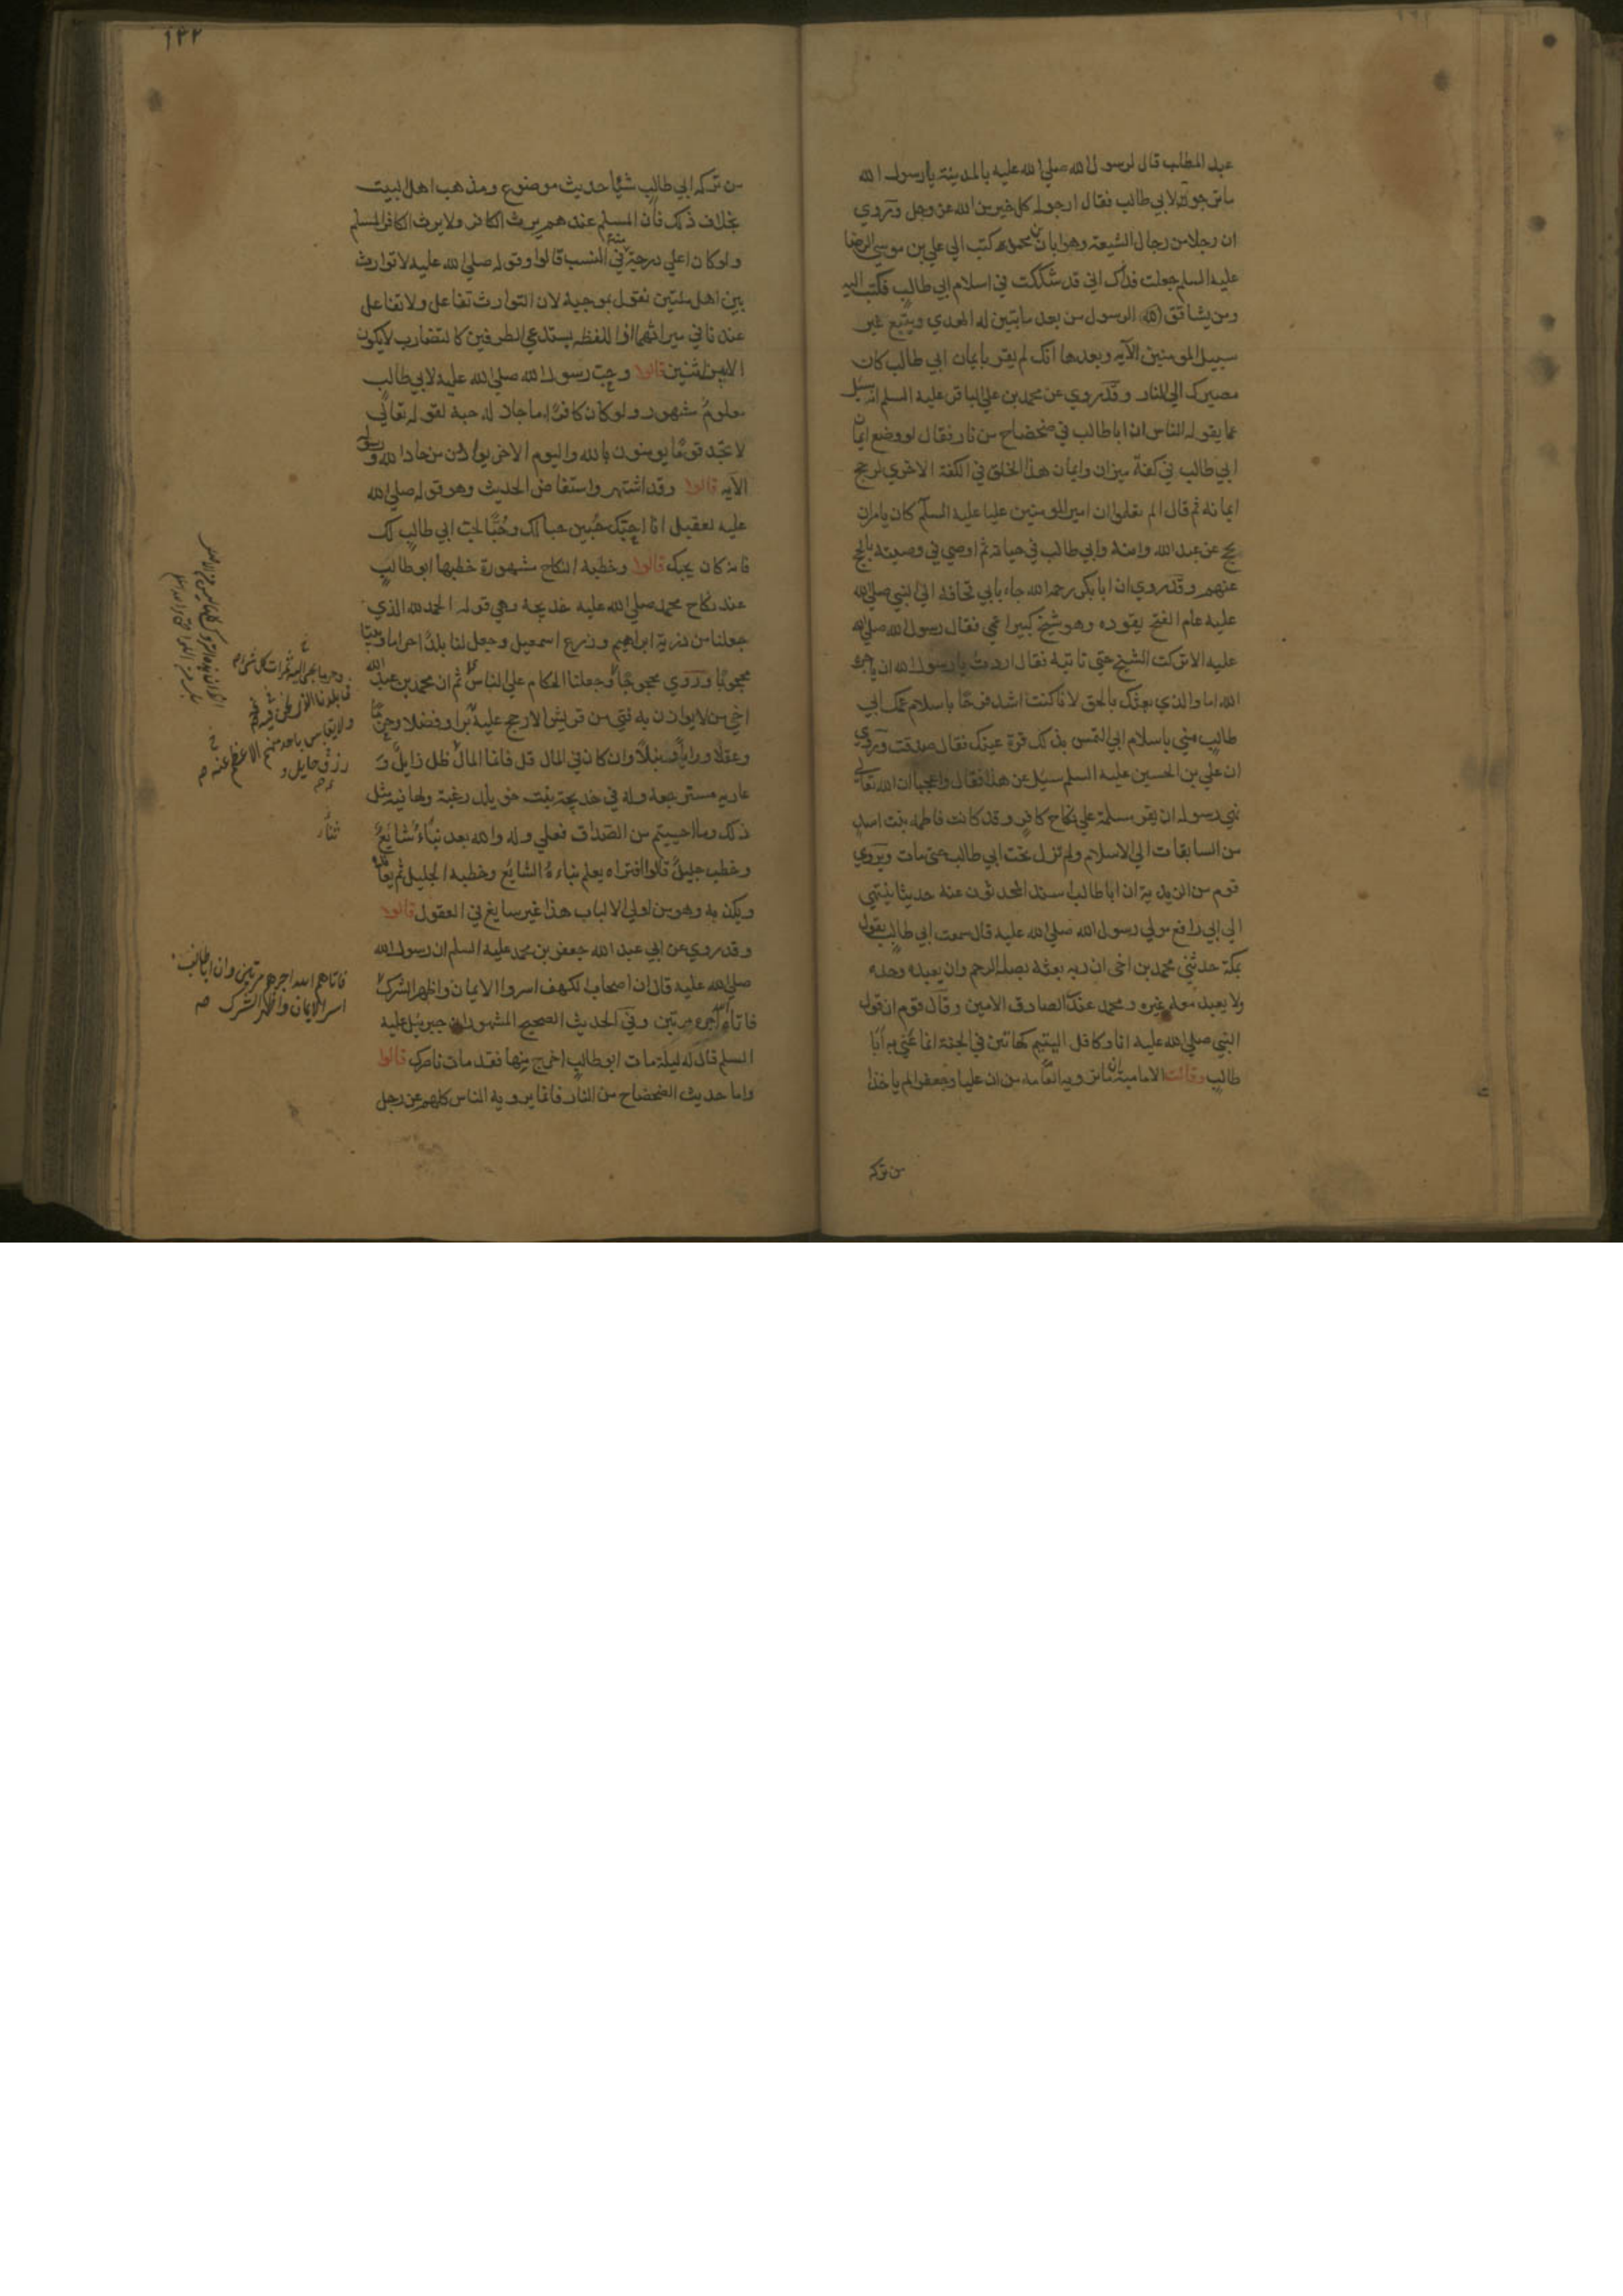 عبد المطلب قال لرسول الله صلي الله عليه بالمدينة يا رسول الله
ما ترجو لابي طالب فقال ارجو له كل خير من الله عز وجل وروي
ان رجلا من رجال الشيعة وهو ابان بن محمود كتب الي علي بن موسي الرضا
عليه السلم جعلت فداك اني قد شككت في اسلام ابي طالب فكتب اليه
ومن يشاقق الرسول من بعد ما تبين له الهدي ويتبع غير
سبيل المومنين الآية وبعدها انك لم تقر بايمان ابي طالب كان
مصيرك الي النار وقد روي عن محمد بن علي الباقر عليه السلم انه سئل
عما يقوله الناس ان ابا طالب في ضحضاح من نار فقال لو وضع ايمان
ابي طالب في كفة ميزان وايمان هذا الخلق في الكفة الاخري لرجح
ايمانه ثم قال الم تعلموا ان امير المومنين عليا عليه السلم كان يامر ان
يحج عن عبد الله وامنة وابي طالب في حياته ثم اوصي في وصيته بالحج
عنهم وقد روي ان ابا بكر رحمه الله جاء بابي قحافة الي النبي صلي الله
عليه عام الفتح يقوده وهو شيخ كبير اعمي فقال رسول الله صلي الله
عليه الا تركت الشيخ حتي ناتيه فقال اردت يا رسول الله ان ياجره
الله اما والذي بعثك بالحق لانا كنت اشد فرحا باسلام عمك ابي
طالب مني باسلام ابي التمس بذلك قرة عينك فقال صدقت وروي
ان علي بن الحسين عليه السلم سيل عن هذا فقال واعجبا ان الله تعالي
نهي رسوله ان يقر مسلمة علي نكاح كافر وقد كانت فاطمة بنت اسد
من السابقات الي الاسلام ولم تزل تحت ابي طالب حتي مات ويروي
قوم من الزيدية ان ابا طالب اسند المحدثون عنه حديثا ينتهي
الي ابي رافع مولي رسول الله صلي الله عليه قال سمعت ابي طالب يقول
بمكة حدثني محمد بن اخي ان ربه بعثه بصلة الرحم وان يعبده وحده
ولا يعبد معه غيره ومحمد عندي الصادق الامين وقال قوم ان قول
النبي صلي الله عليه انا وكافل اليتيم كهاتين في الجنة انما عني به ابا
طالب وقالت الامامية ان ما تروية العامة من ان عليا وجعفرا لم ياخذا
من تركه
١٣٢
من تركه ابي طالب شيئا حديث موضوع ومذهب اهل البيت
بخلاف ذلك فان المسلم عندهم يرث الكافر ولا يرث الكافر المسلم
ولو كان اعلي درجة منه في النسب قالوا وقوله صلي الله عليه لا توارث
بين اهل ملتين نقول بموجبه لان التوارث تفاعل ولا تفاعل
عندنا في ميراثهما واللفظ يستدعي الطرفين كالتضارب لا يكون
الا من اثنين قالوا وحب رسول الله صلي الله عليه لابي طالب
معلوم مشهور ولو كان كافرا ما جاز له حبه لقوله تعالي
لا تجد قوما يومنون بالله واليوم الاخر يوادون من حاد الله ورسوله
الآية قالوا وقد اشتهر واستفاض الحديث وهو قوله صلي الله
عليه لعقيل انا احبك حبين حبا لك وحبا لحب ابي طالب لك
فانه كان يحبك قالوا وخطبة النكاح مشهورة خطبها ابو طالب
عند نكاح محمد صلي الله عليه خديجة وهي قوله الحمد لله الذي
جعلنا من ذرية ابراهيم وزرع اسمعيل وجعل لنا بلدا حراما وبيتا
محجوبا وروي محجوجا وجعلنا الحكام علي الناس ثم ان محمد بن عبد الله
اخي من لا يوازن به فتي من قريش الا رجح عليه برا وفضلا وحزما
وعقلا ورايا ونبلا وان كان في المال قل فانما المال ظل زايل و
عارية مسترجعة وله في خديجة بنت خويلد رغبة ولها فيه مثل
ذلك وما احببتم من الصداق فعلي وله والله بعد نباء شايع
وخطب جليل قالوا افتراه يعلم نباءه الشايع وخطبه الجليل ثم يعانده
ويكذبه وهو من اولي الالباب هذا غير سايغ في العقول قالوا
وقد روي عن ابي عبد الله جعفر بن محمد عليه السلم ان رسول الله
صلي الله عليه قال ان اصحاب الكهف اسروا الايمان واظهروا الشرك
فاتاهم الله اجرهم مرتين وفي الحديث الصحيح المشهور ان جبرئيل عليه
السلم قال له ليلة مات ابو طالب اخرج منها فقد مات ناصرك قالوا
واما حديث الضحضاح من النار فانما يرويه الناس كلهم عن رجل
وحرما يجبي اليه ثمرات كل شي
ولا يقاس باحد منهم الا عظم عنه صح
رزق حايل و
فاتاهم الله اجرهم مرتين وان ابا طالب
اسر الايمان واظهر الشرك صح